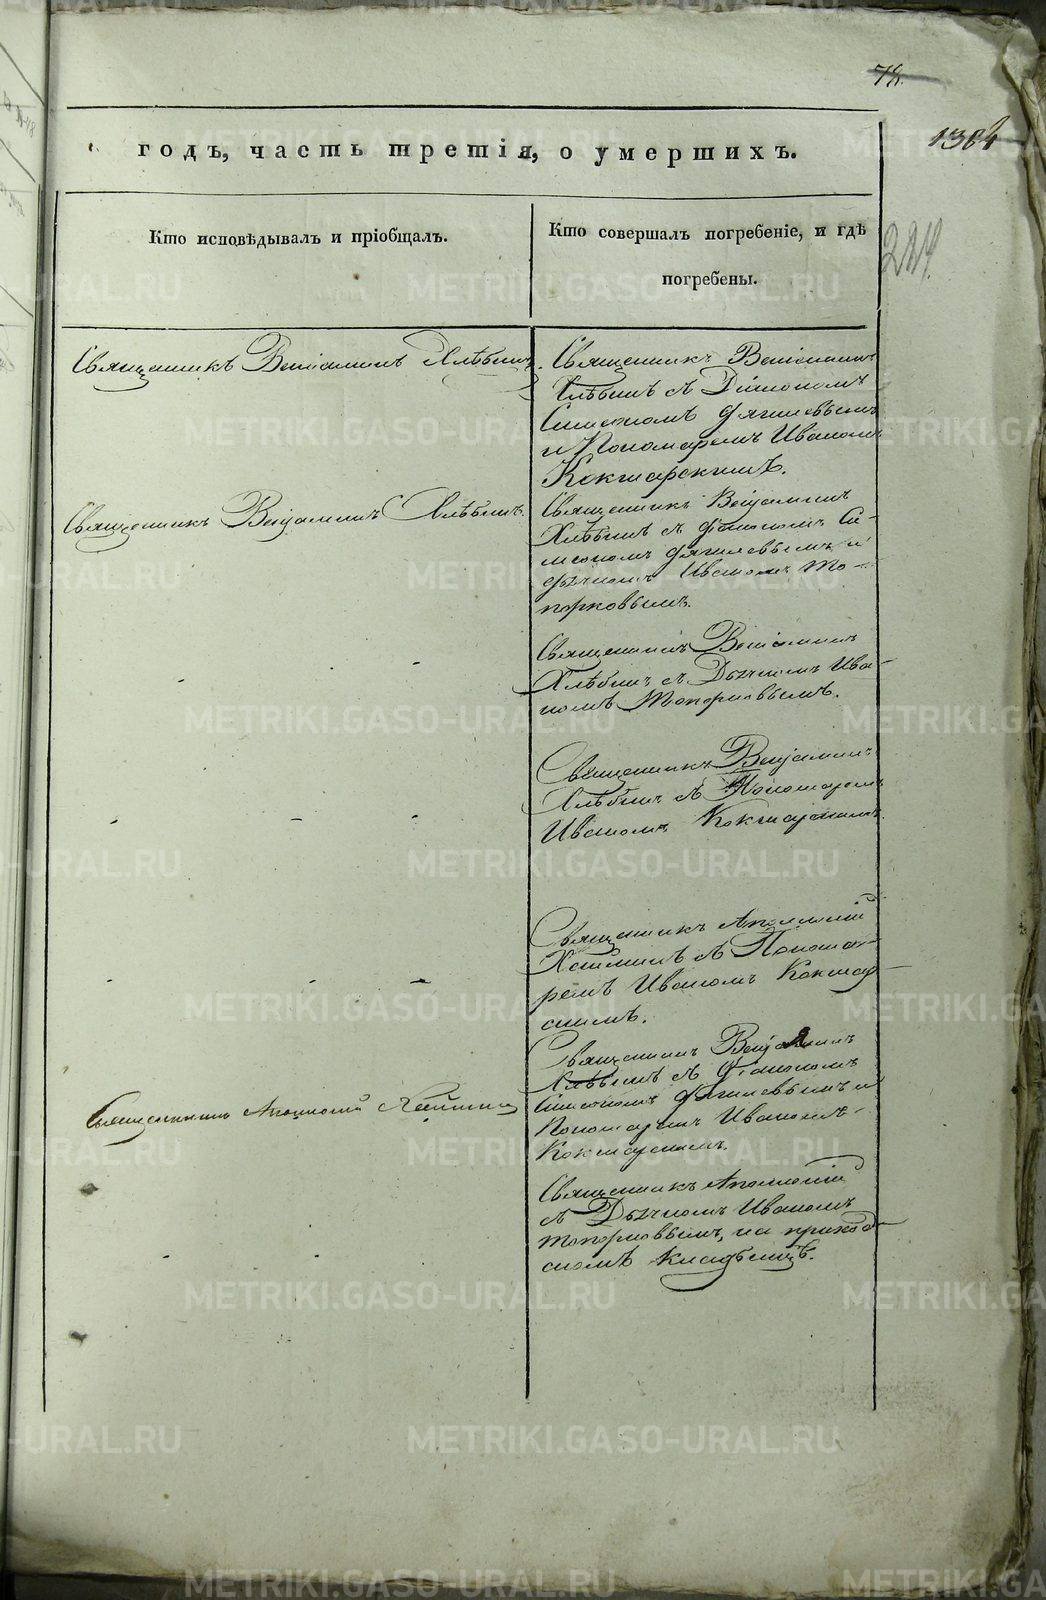 78.
1364
годъ, часть третія, о умершихъ.
224
Кто исповѣдывалъ и пріобщалъ.
Кто совершалъ погребеніе, и гдѣ
погребены.
Священникъ Веніаминъ Хлѣбинъ.
Священникъ Веніаминъ
Хлѣбинъ съ Діакономъ
Симеономъ Дягилевымъ
и Пономаремъ Иваномъ
Кокшарскимъ.
Священникъ Веніаминъ Хлѣбинъ.
Священникъ Веніаминъ
Хлѣбинъ съ Діакономъ Си-
меономъ Дягилевымъ и
Дьячкомъ Иваномъ То-
порковымъ.
Священникъ Веніаминъ
Хлѣбинъ съ Дьячкомъ Ива-
номъ Топорковымъ.
Священникъ Веніаминъ
Хлѣбинъ съ Пономаремъ
Иваномъ Кокшарскимъ.
Священникъ Аполлоній
съ Понома-
ремъ Иваномъ Кокшар-
скимъ.
Священникъ Веніаминъ
Хлѣбинъ съ Діакономъ
Симеономъ Дягилевымъ и
Пономаремъ Иваномъ
Кокшарскимъ.
Священникъ Аполлоній
Священникъ Аполлоній
съ Дьячкомъ Иваномъ
Топорковымъ, на приход-
скомъ кладбищѣ.
METRIKI.GASO-URAL.RU